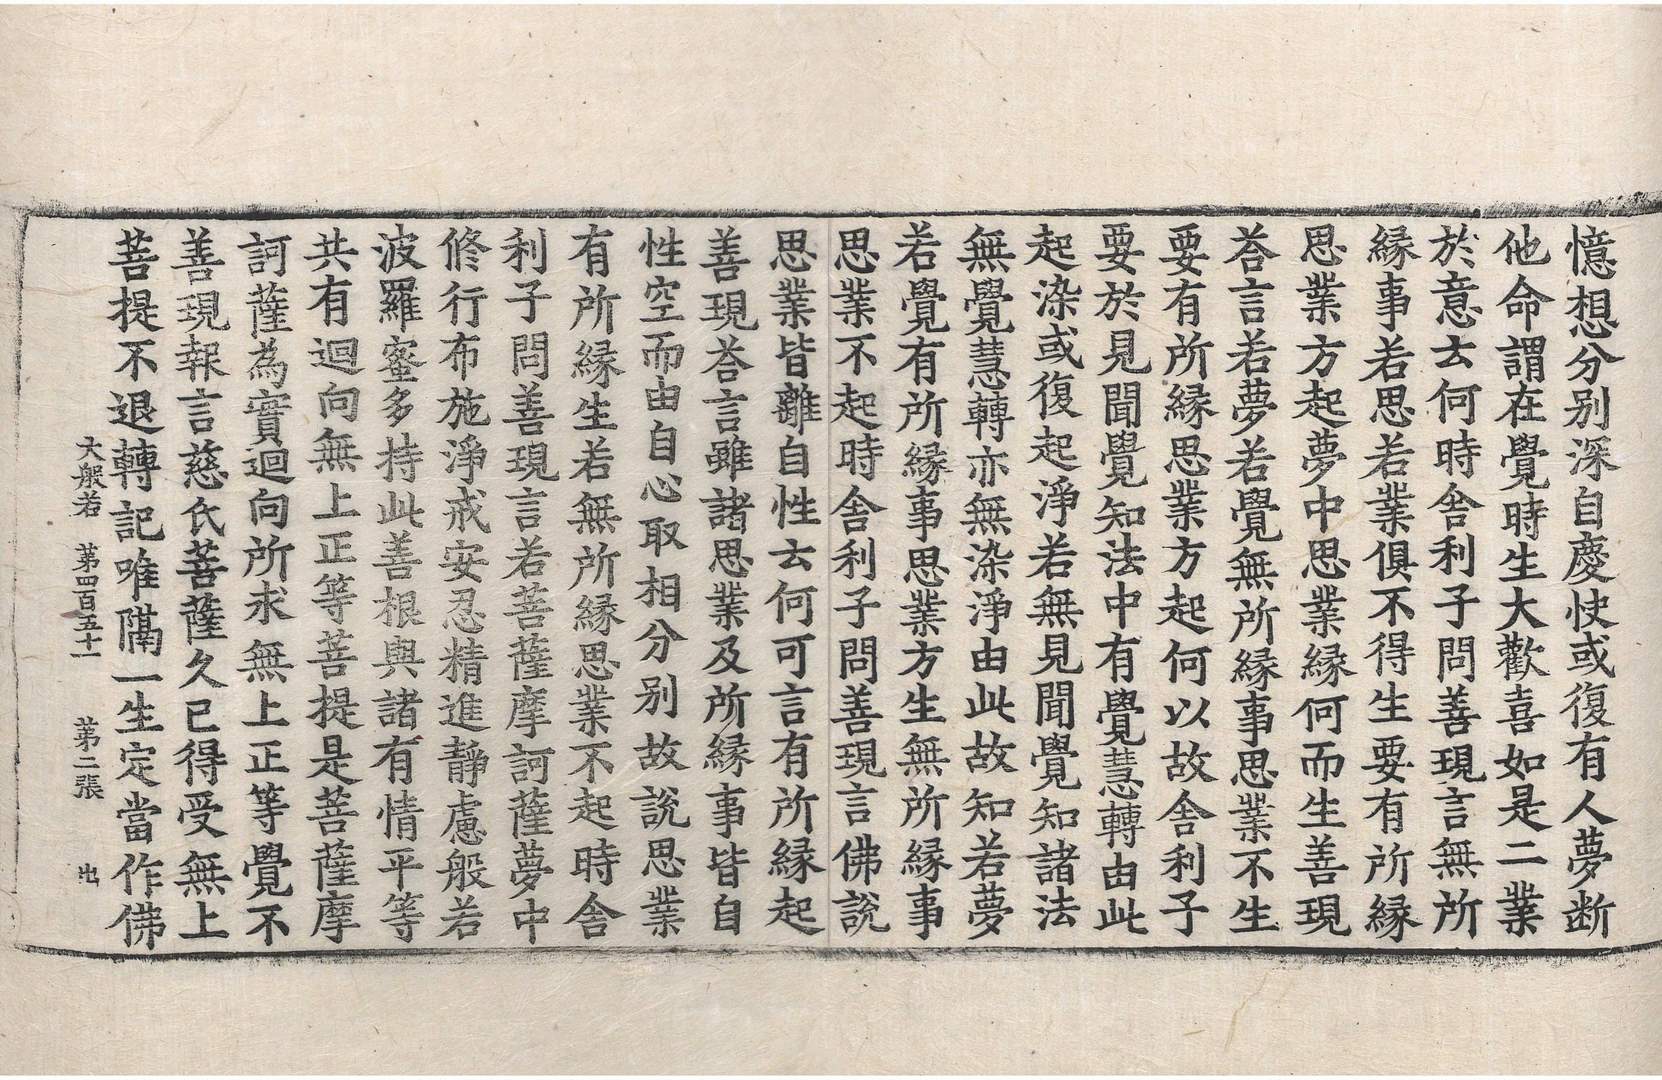 憶想分别深自慶快或復有人夢断
他命謂在覺時生大歡喜如是二業
於意云何時舎利子問善現言無所
緣事若思若業俱不得生要有所緣
思業方起夢中思業緣何而生善現
荅言若夢若覺無所緣事思業不生
要有所緣思業方起何以故舎利子
要於見聞覺知法中有覺慧轉由此
起染或復起淨若無見聞覺知諸法
無覺慧轉亦無染淨由此故知若夢
若覺有所緣事思業方生無所緣事
思業不起時舎利子問善現言佛說
思業皆離自性云何可言有所緣起
善現荅言雖諸思業及所緣事皆自
性空而由自心取相分别故說思業
有所緣生若無所緣思業不起時舎
利子問善現言若菩薩摩訶薩夢中
修行布施淨戒安忍精進靜慮般若
波羅蜜多持此善根與諸有情平等
共有迴向無上正等菩提是菩薩摩
訶薩為實迴向所求無上正等覺不
善現報言慈氏菩薩久已得受無上
菩提不退轉記唯隔一生定當作佛
大般若 第四百五十一 第二張 出